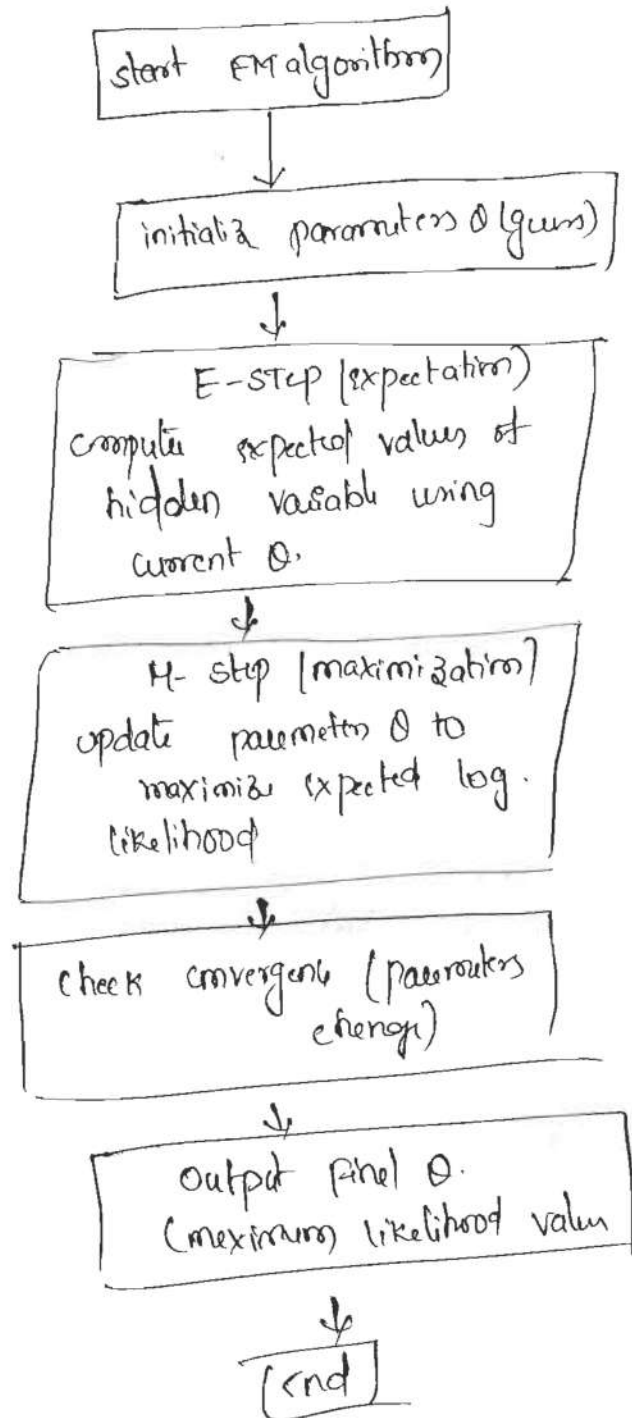 start EM algorithm
initializ parameters θ (guess)
E-step (expectation)
compute expected values of
hidden variable using
current θ.
M-step (maximization)
update parameters θ to
maximize expected log.
likelihood
check convergence (parameters
change)
Output final θ.
(maximum likelihood value
end